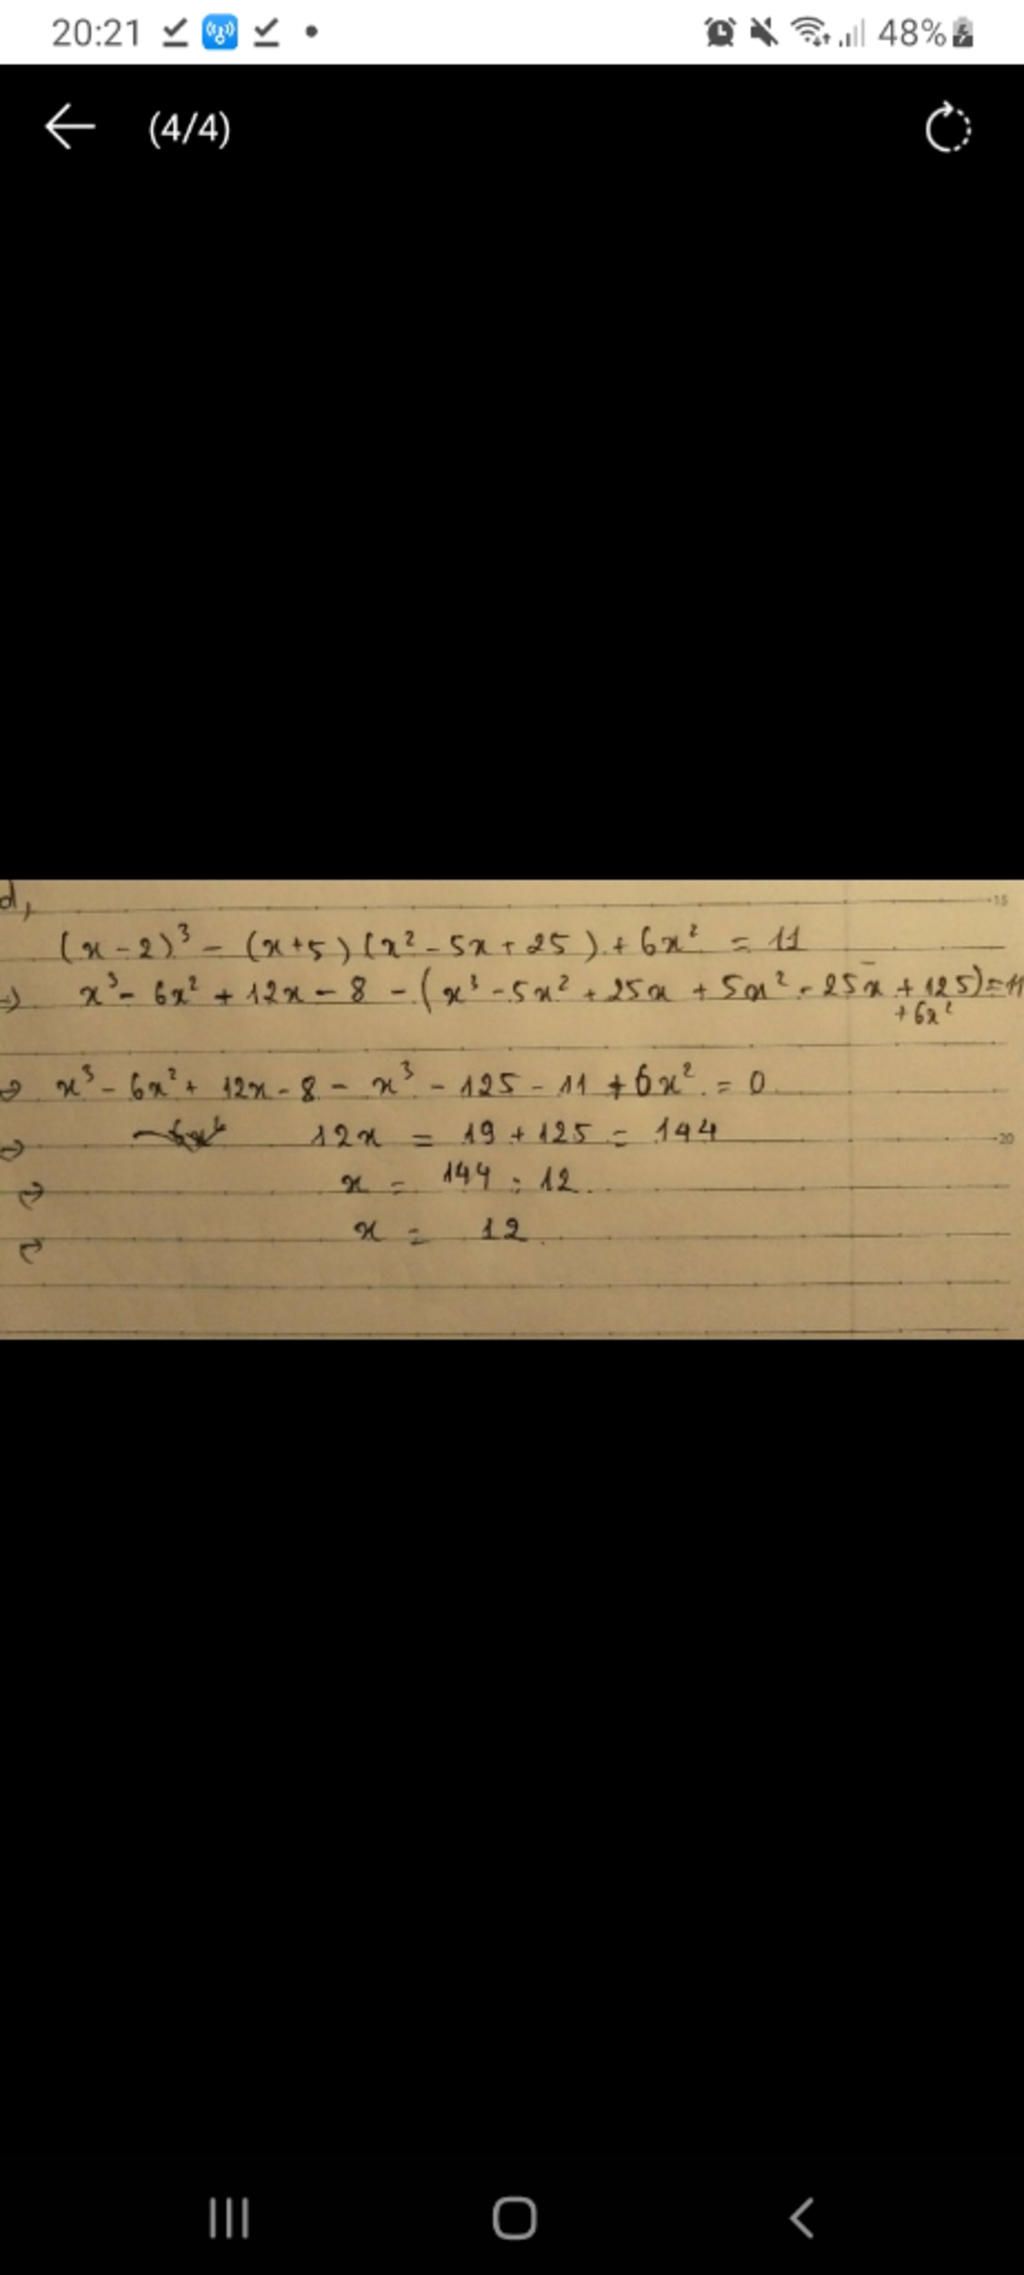 20:21 48%
(4/4)
d,
15
(x-2)³ - (x+5)(x² - 5x + 25) + 6x² = 11
⇒ x³ - 6x² + 12x - 8 - (x³ - 5x² + 25x + 5x² - 25x + 125) = 11
+ 6x²
⇒ x³ - 6x² + 12x - 8 - x³ - 125 - 11 + 6x² = 0
⇒ 12x = 19 + 125 = 144
20
⇒ x = 144 : 12
x = 12